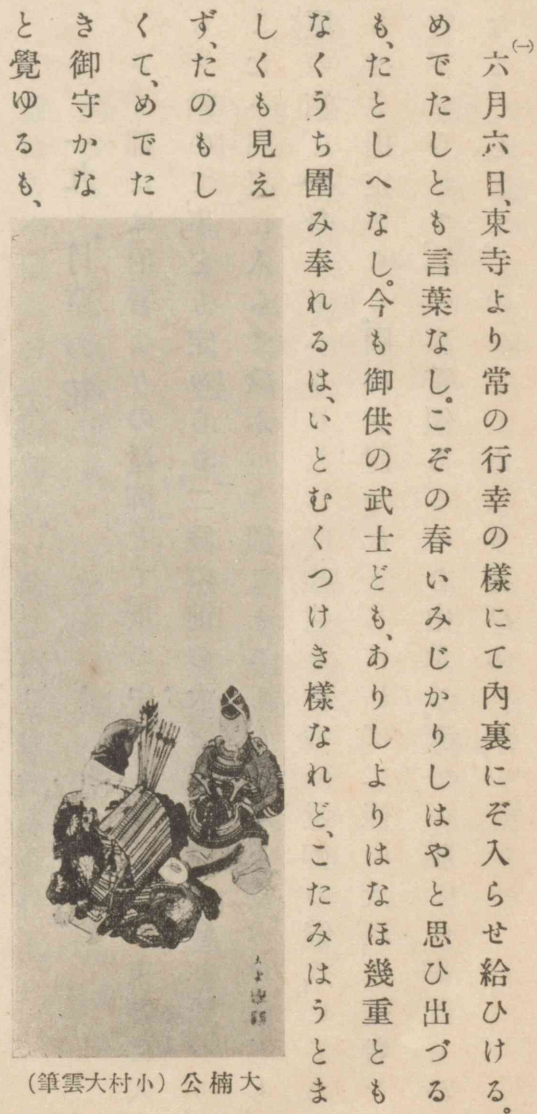 (一)
六月六日、東寺より常の行幸の樣にて內裏にぞ入らせ給ひける。
めでたしとも言葉なし。こぞの春いみじかりしはやと思ひ出づる
も、たとしへなし。今も御供の武士ども、ありしよりはなほ幾重とも
なくうち圍み奉れるは、いとむくつけき樣なれど、こたみはうとま
しくも見え
ず、たのもし
くて、めでた
き御守かな
と覺ゆるも、
大楠公(小村大雲筆)